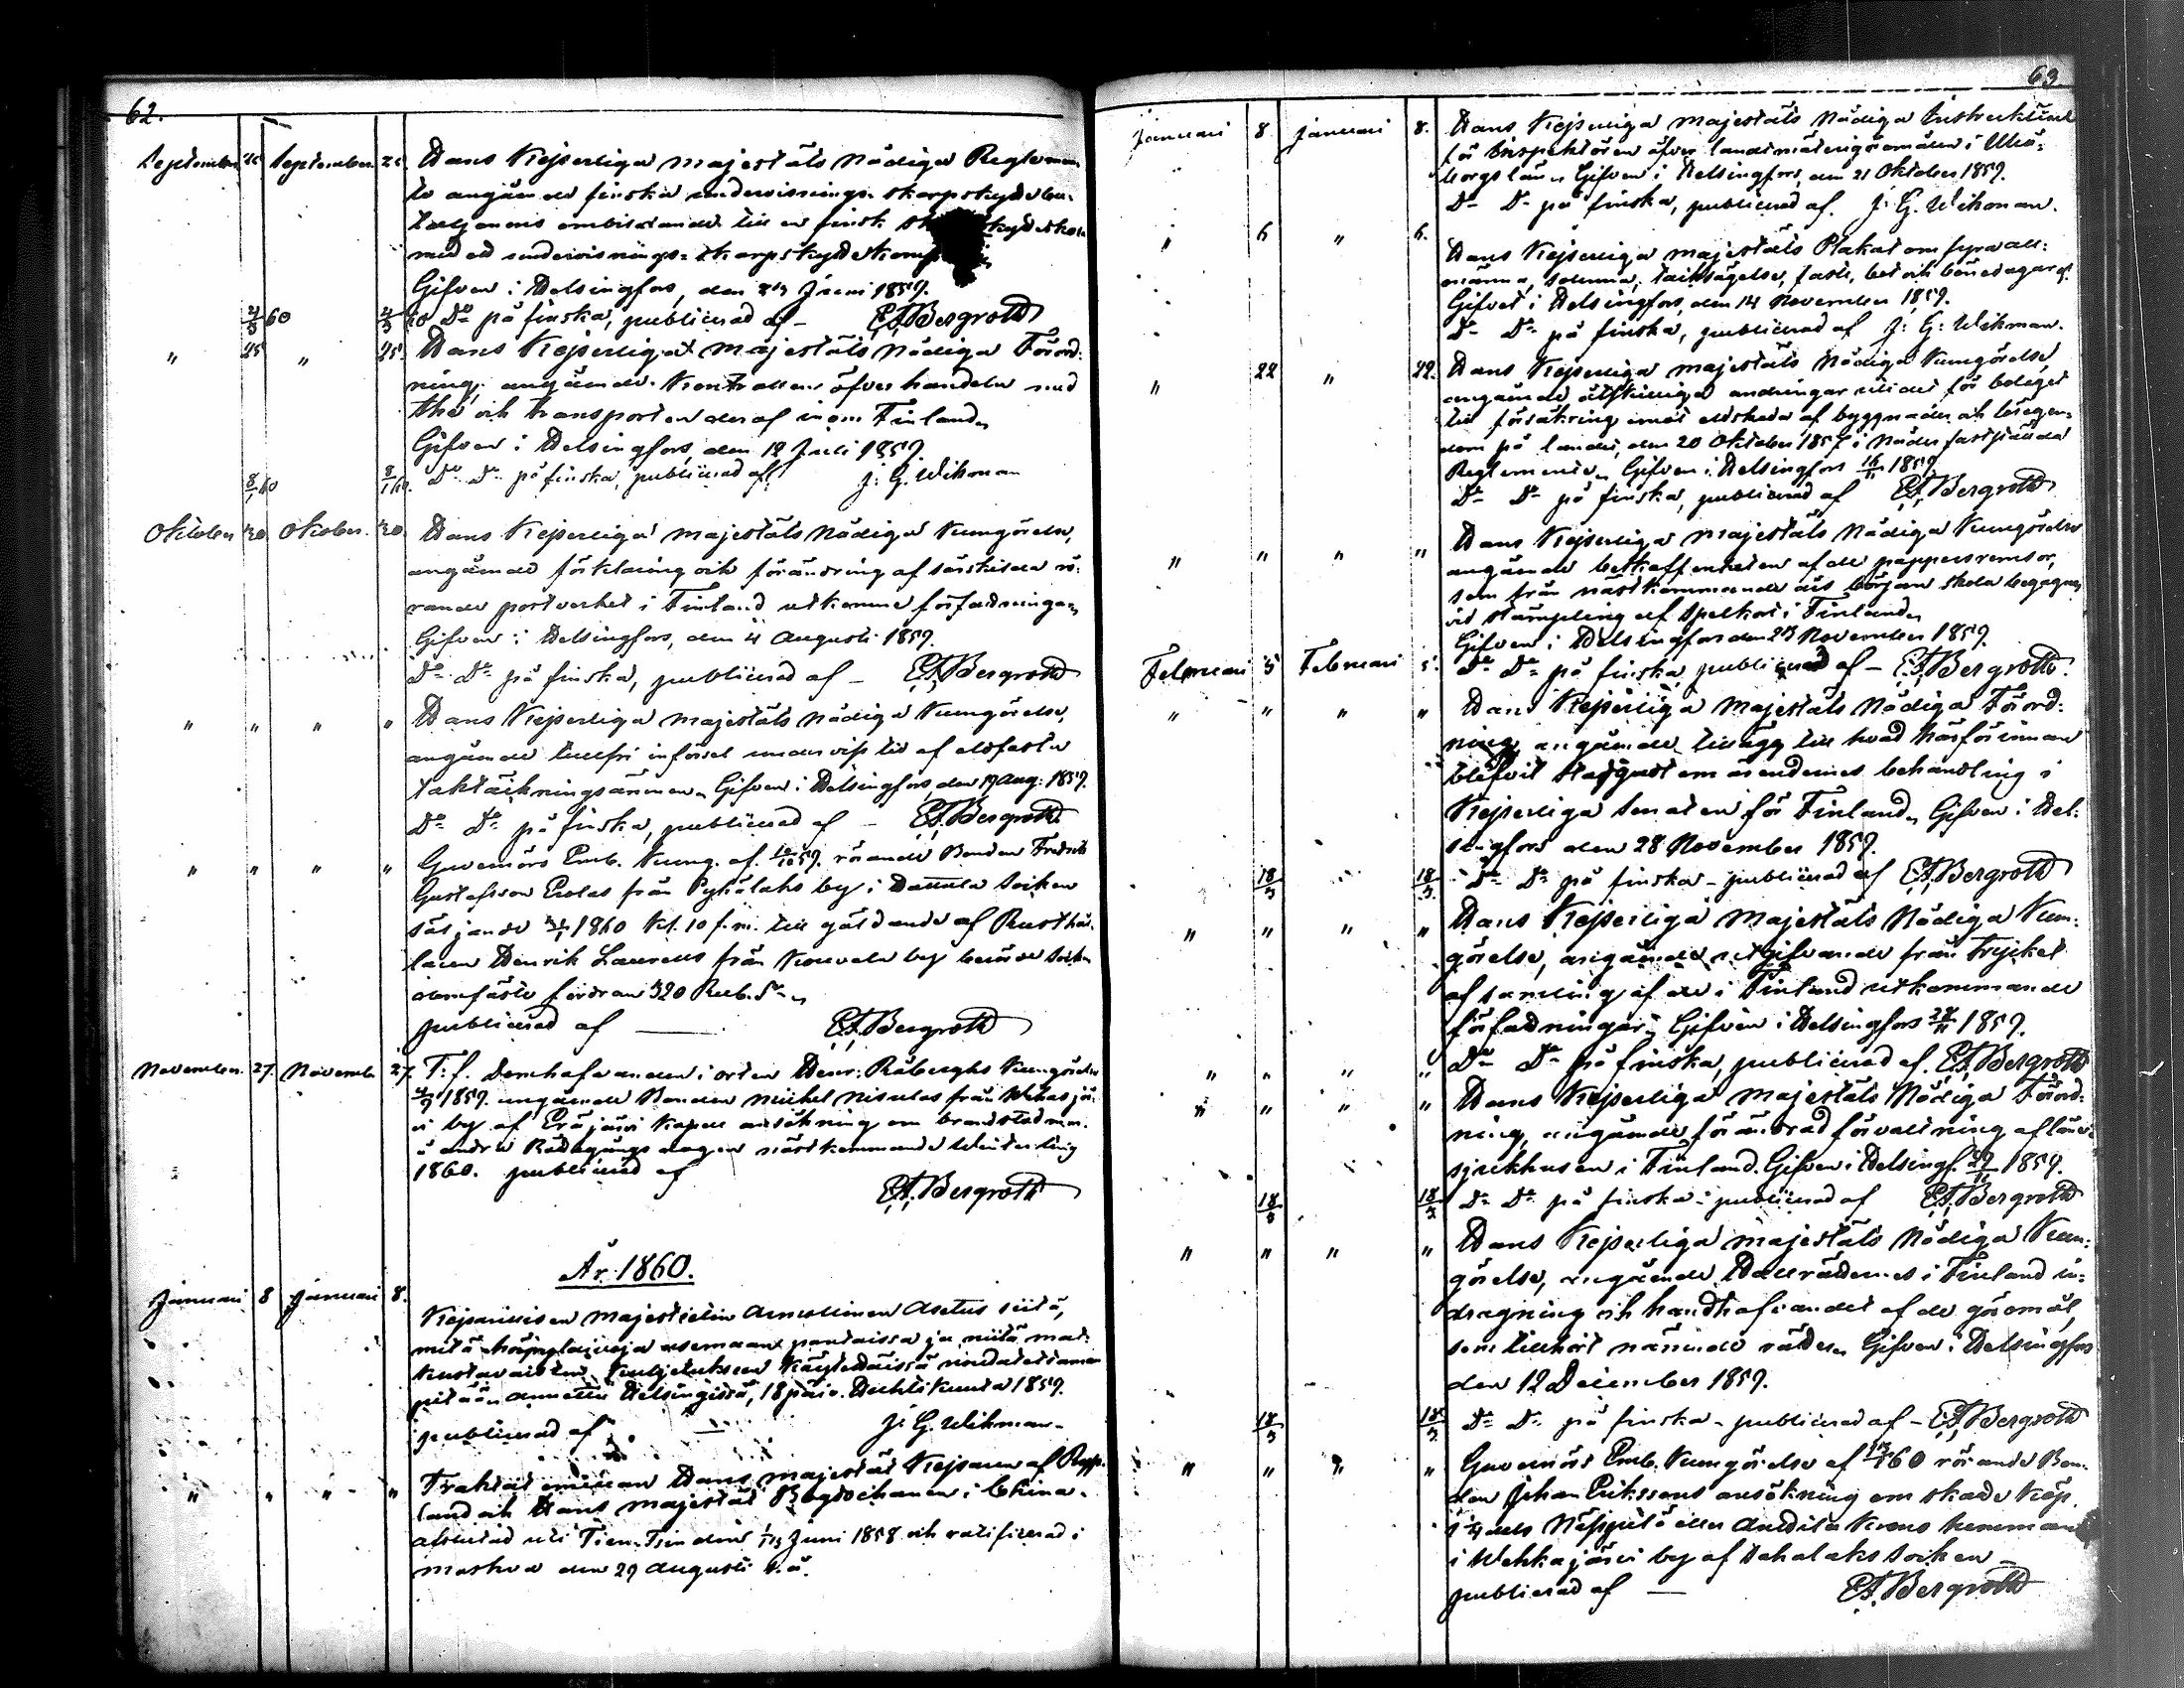 62.
September 25 September 25. Hans Kejserliga Majestäts Nådiga Reglemen-
te angående finska undervisnings-skarpskytteba-
taljonens ombildande till en finsk
med ett undervisnings-skarpskyttekomp
Gifven i Helsingfors, den Juni 1859.
4/3 60 4/3 60 Do på finska, publicerad af – E. A. Bergroth
" 25 " 25. Hans Kejserliga Majestäts Nådiga Förord-
ning, angående Kontrollen öfver handeln med
thé och transporten deraf inom Finland,
Gifven i Helsingfors, den 18 Juli 1859.
8/1 60 8/1 60. Do Do på finska, publicerad af: J: G. Wikman
Oktober 30 Oktober. 30. Hans Kejserliga Majestäts Nådiga Kungörelse,
angående förklaring och förändring af särskilda rö-
rande postverket i Finland utkomna författningar,
Gifven i Helsingfors, den 4 Augusti 1859.
Do Do på finska, publicerad af – E. A. Bergroth
" " " " Hans Kejserliga Majestäts Nådiga Kungörelse,
angående tullfri införsel under viss tid af eldfasta
taktäckningsämnen, Gifven i Helsingfors, den 19 Aug: 1859.
Do Do på finska, publicerad af – E. A. Bergroth
" " " " Guvernörs Emb. Kung. af 59. rörande Bonden Fredrik
Gustafsson Erolas från Pyhälahs by i Hattula Socken
1860 Kl. 10 f.m. till gäldande af Rusthål-
laren Henrik Laurells från Kouvala by berörde Socken
fordran 320 Rub. Sr.
publicerad af — E. A. Bergroth
November. 27. Novemb. 27. T: f. Domhafvanden i orten Henr: Råberghs Kungörelse
1859. angående Bonden Michel från Wehkasjär-
vi by af Eräjärvi Kapell ansökning om brandstod m.m.
å andra Rådagångs dagen nästkommande Winterting
1860. publicerad af
E. A. Bergroth
År 1860.
Januari 8 Januari 8. Kejsarillisen Majesteetin Armollinen Asetus siitä,
mitä asemaan pantaissa ja niitä mat-
kustavaisten kuljetukseen käytettäissä noudatettaman
pitää. Annettu Helsingissä, 18 päiv. Huhtikuuta 1859.
publicerad af — J: G. Wikman.
" " " " Traktat emellan Hans Majestät Kejsaren af Ryss-
land och Hans Majestät Bogdochanen i China.
afslutad uti Tien-Tsin den 1/13 Juni 1858 och ratificerad i
Moskva den 29 Augusti s.å.
63.
Januari 8 Januari 8. Hans Kejserliga Majestäts Nådiga Instruktion
för Inspektören öfver landtmäterigöromålen i Uleå-
borgs län, Gifven i Helsingfors, den 21 Oktober 1859.
Do Do på finska, publicerad af. J: G. Wikman.
" 6 " 6. Hans Kejserliga Majestäts Plakat om fyra all-
männa, solenna, tacksägelse, faste, bot och bönedagar
Gifvet i Helsingfors, den 14 November 1859.
Do Do på finska, publicerad af J: G: Wikman.
" 22 " 22. Hans Kejserliga Majestäts Nådiga Kungörelse,
angående åtskilliga ändringar uti det för bolaget
till försäkring emot eldskada af byggnader och lösegen-
dom på landet, den 20 Oktober 1857 i Nåder fastställda
Reglemente, Gifven i Helsingfors 16/11 1859.
Do Do på finska, publicerad af E. A. Bergroth
" " " " Hans Kejserliga Majestäts Nådiga Kungörelse
angående beskaffenheten af de pappersremsor,
som från nästkommande års början skola begagnas
vid stämpling af spelkort i Finland,
Gifven i Helsingfors den 23 November 1859.
Februari 5 Februari 5. Do Do på finska publicerad af – E. A. Bergroth.
" " " " Hans Kejserliga Majestäts Nådiga Förord-
ning, angående tillägg till hvad härförinnan
blifvit stadgadt om ärendernes behandling i
Kejserliga Senaten för Finland, Gifven i Hel-
singfors den 28 November 1859.
18/3 18/3. Do Do på finska – publicerad af E. A. Bergroth
" " " " Hans Kejserliga Majestäts Nådiga Kun-
görelse, angående utgifvande från trycket
af samling af de i Finland utkommande
författningar, Gifven i Helsingfors 28/11 1859.
" " " " Do Do på finska, publicerad af. E. A. Bergroth
" " " " Hans Kejserliga Majestäts Nådiga Förord-
ning, angående förändrad förvaltning af läns-
sjukhusen i Finland. Gifven i Helsingf. 1859.
18/3 18/3 Do Do på finska – publicerad af E. A. Bergroth
" " " " Hans Kejserliga Majestäts Nådiga Kun-
görelse, angående Hallrätternes i Finland in-
dragning och handhafvandet af de göromål,
som tillhört nämnde rätter, Gifven i Helsingfors
den 12 December 1859.
18/3 18/3 Do Do på finska – publicerad af – E. A. Bergroth
" " " " Guvernörs Emb. Kungörelse af 60 rörande Bon-
den Johan Erikssons ansökning om skatte köp
i Wehkajärvi by af Sahalaks Socken –
publicerad af — E. A. Bergroth